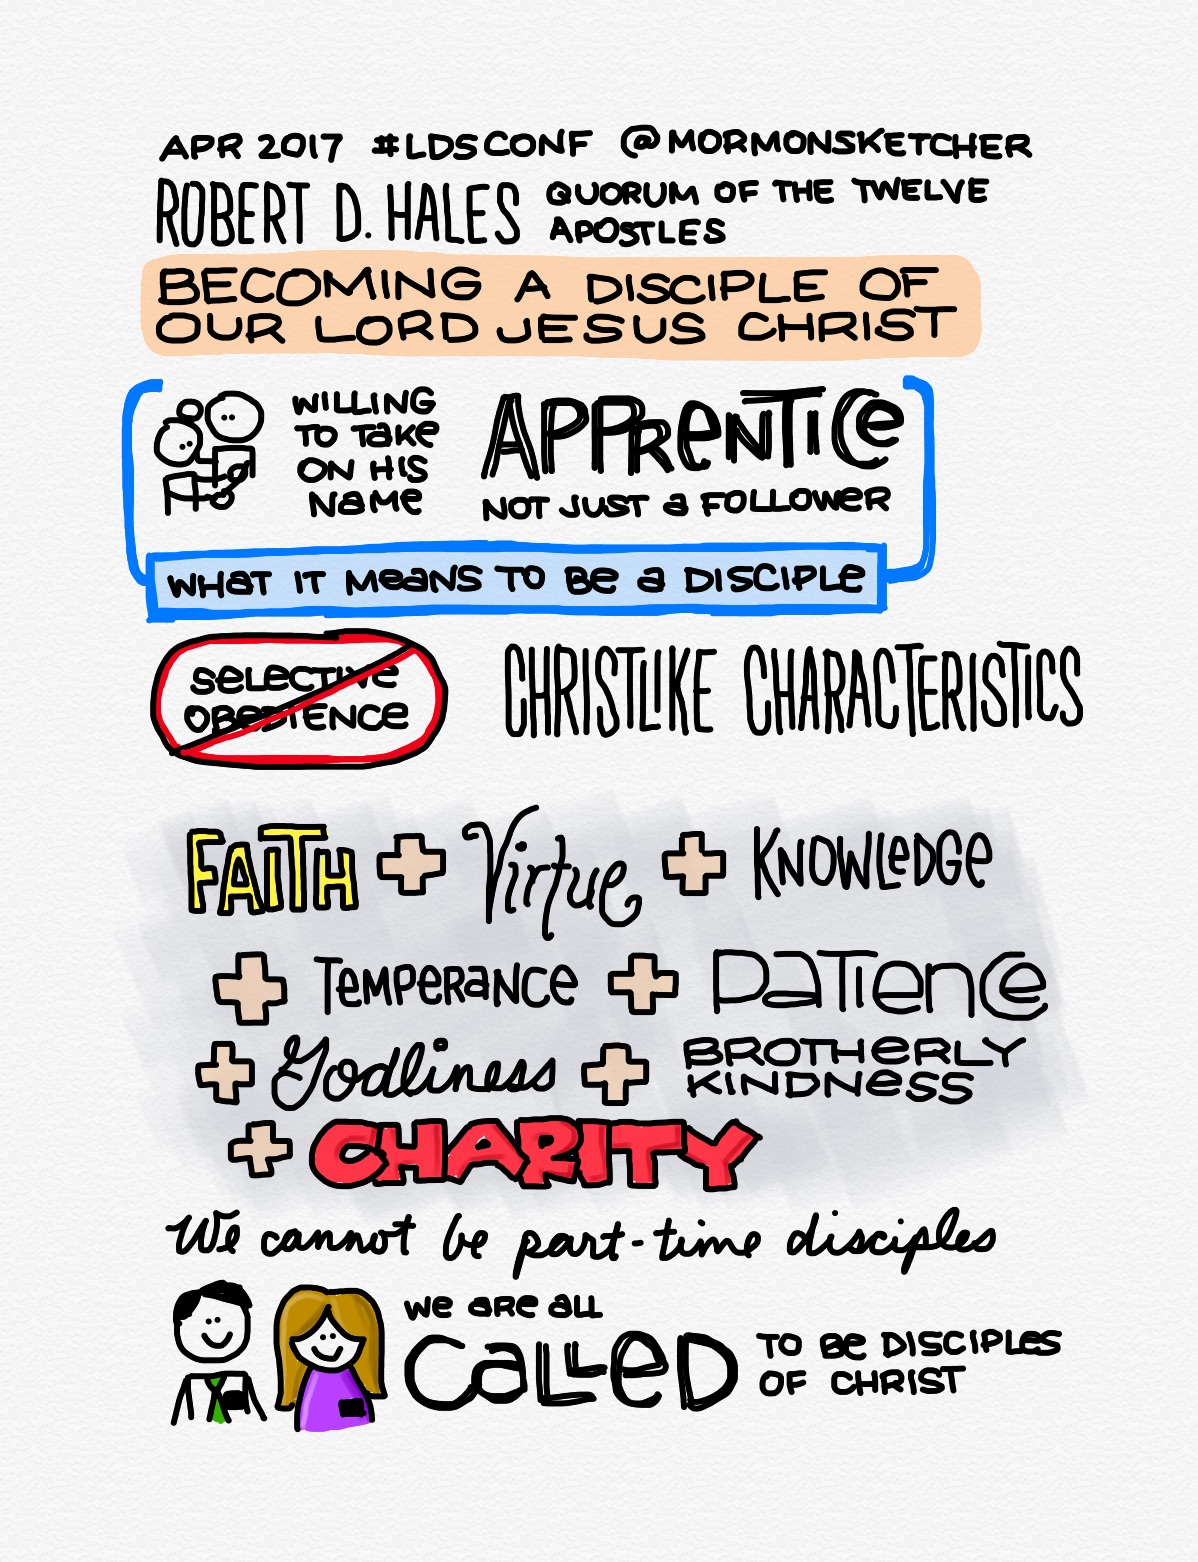 APR 2017 #LDSCONF @MORMONSKETCHER
ROBERT D. HALES QUORUM OF THE TWELVE
APOSTLES
BECOMING A DISCIPLE OF
OUR LORD JESUS CHRIST
WILLING
TO TAKE
ON HIS
NAME
APPRENTICE
NOT JUST A FOLLOWER
WHAT IT MEANS TO BE A DISCIPLE
SELECTIVE
OBEDIENCE
CHRISTLIKE CHARACTERISTICS
FAITH + Virtue + KNOWLEDGE
+ TEMPERANCE + PATIENCE
+ Godliness + BROTHERLY
KINDNESS
+ CHARITY
We cannot be part-time disciples
WE ARE ALL
CALLED
TO BE DISCIPLES
OF CHRIST